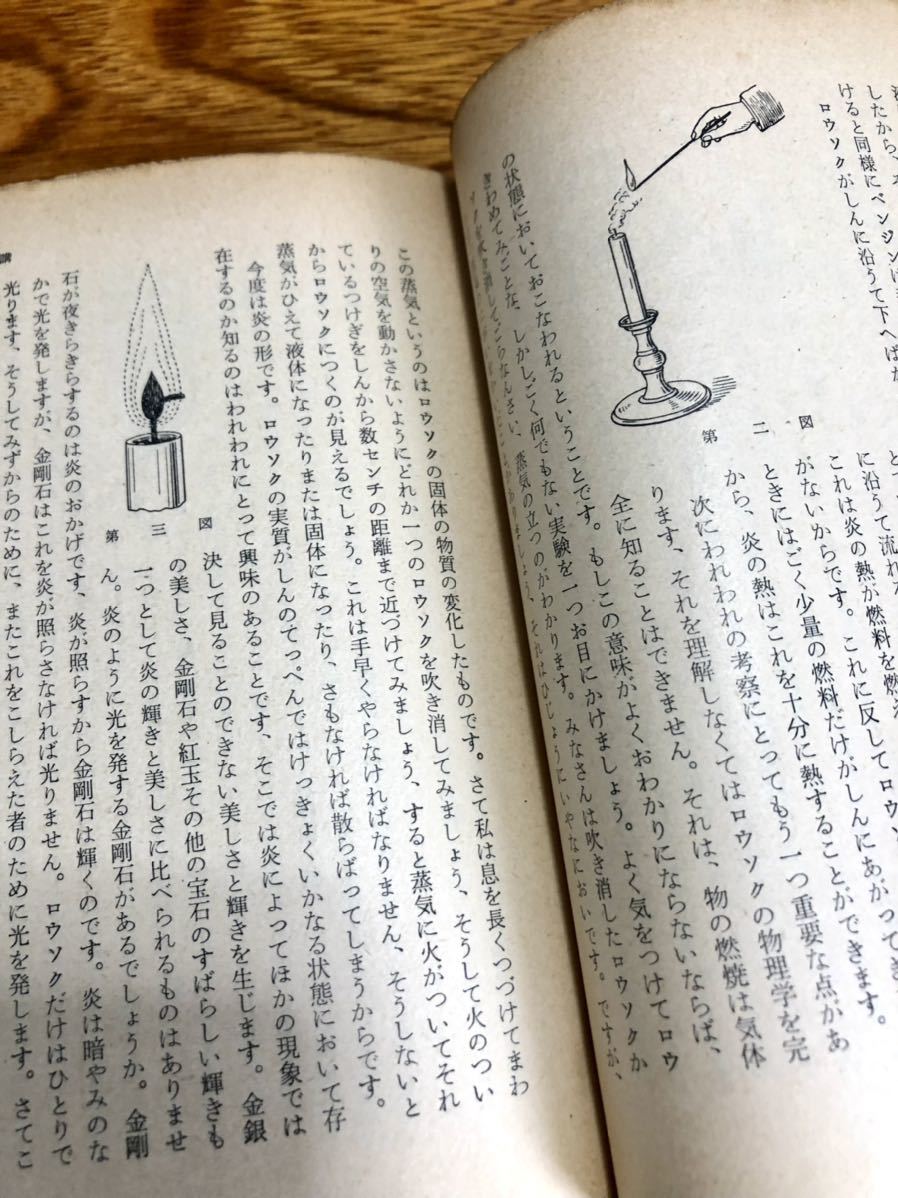 したから、
けると同様にベンジンは
ロウソクがしんに沿うて下へ
第二図
に沿うて流れ
これは炎の熱が燃料を燃え
がないからです。これに反してロウソ
ときにはごく少量の燃料だけがしんにあがってき
から、炎の熱はこれを十分に熱することができます。
次にわれわれの考察にとってもう一つ重要な点があ
ります、それを理解しなくてはロウソクの物理学を完
全に知ることはできません。それは、物の燃焼は気体
の状態においておこなわれるということです。もしこの意味がよくおわかりにならないならば、
きわめてみごとな、しかしごく何でもない実験を一つお目にかけましょう。よく気をつけてロウ
ソクを吹き消してごらんなさい、蒸気の立つのがわかります。みなさんは吹き消したロウソクか
それはひじょうにいやなにおいです。ですが、
この蒸気というのはロウソクの固体の物質の変化したものです。さて私は息を長くつづけてまわ
りの空気を動かさないようにどれか一つのロウソクを吹き消してみましょう、そうして火のつい
ているつけぎをしんから数センチの距離まで近づけてみましょう、すると蒸気に火がついてそれ
からロウソクにつくのが見えるでしょう。これは手早くやらなければなりません、そうしないと
蒸気がひえて液体になったりまたは固体になったり、さもなければ散らばってしまうからです。
今度は炎の形です。ロウソクの実質がしんのてっぺんではけっきょくいかなる状態において存
在するのか知るのはわれわれにとって興味のあることです、そこでは炎によってほかの現象では
決して見ることのできない美しさと輝きを生じます。金銀
の美しさ、金剛石や紅玉その他の宝石のすばらしい輝きも
一つとして炎の輝きと美しさに比べられるものはありませ
ん。炎のように光を発する金剛石があるでしょうか。金剛
第三図
石が夜きらきらするのは炎のおかげです、炎が照らすから金剛石は輝くのです。炎は暗やみのな
かで光を発しますが、金剛石はこれを炎が照らさなければ光りません。ロウソクだけはひとりで
光ります、そうしてみずからのために、またこれをこしらえた者のために光を発します。さてこ
講